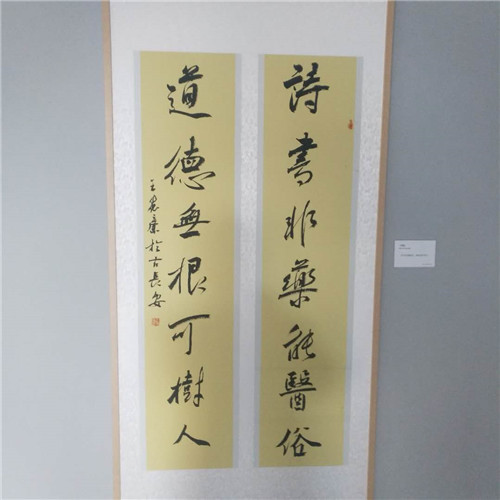 詩書非藥能醫俗
道德無根可樹人
於古長安